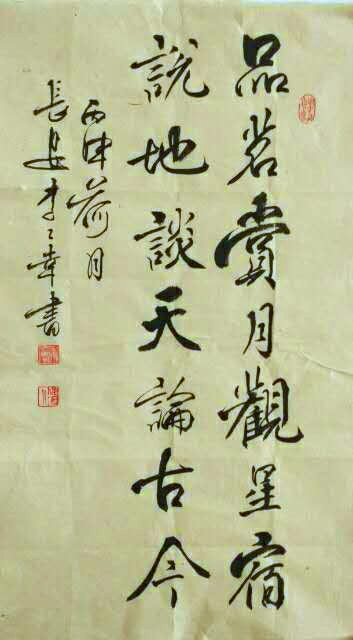 品茗賞月觀星宿
說地談天論古今
丙申荷月
長安李三幸書